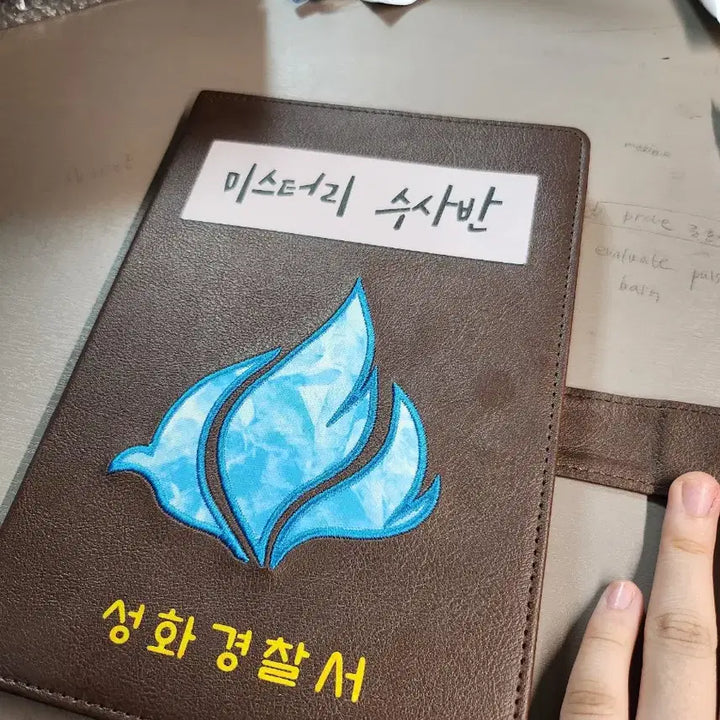 미스터리 수사반
성화경찰서
prove
evaluate